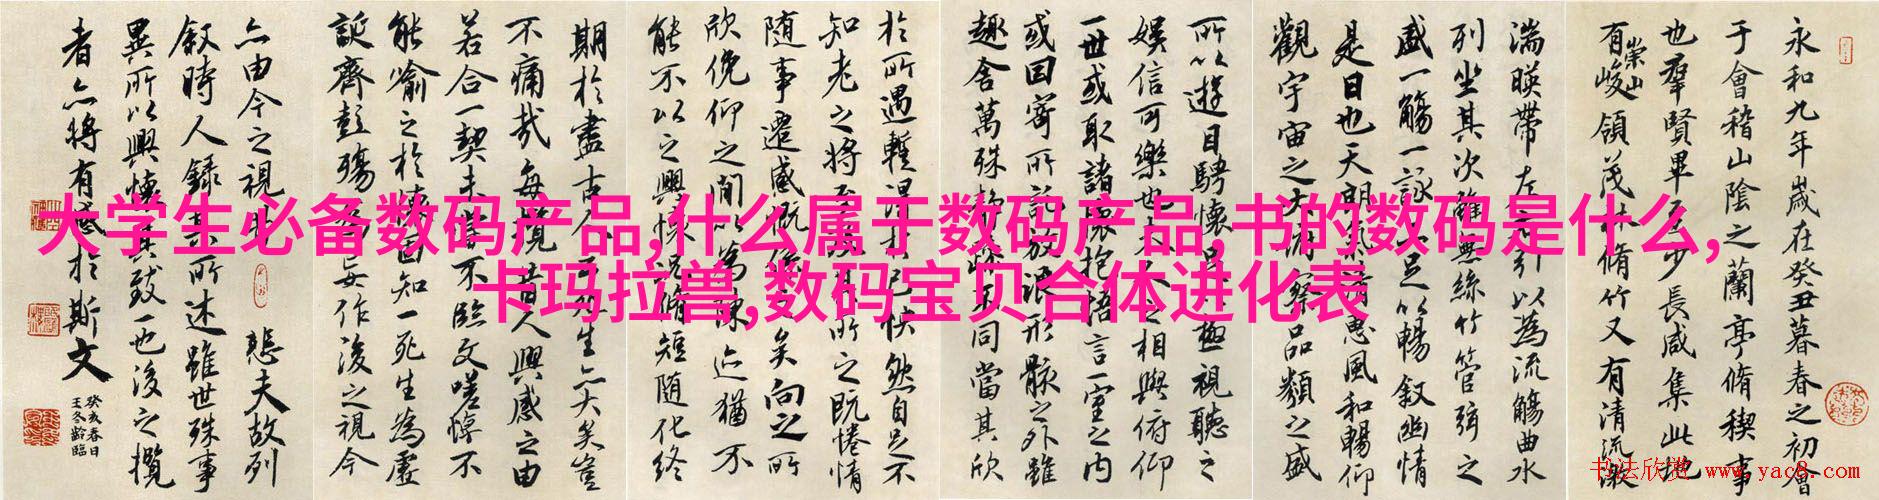 大学生必备数码产品,什么属于数码产品,书的数码是什么,
卡玛拉兽,数码宝贝合体进化表
永和九年歲在癸丑暮春之初會
于會稽山陰之蘭亭脩稧事
也羣賢畢至少長咸集此地
有崇山峻領茂林脩竹又有清流激
湍暎帶左右引以為流觴曲水
列坐其次雖無絲竹管弦之
盛一觴一詠亦足以暢叙幽情
是日也天朗氣清惠風和暢仰
觀宇宙之大俯察品類之盛
所以遊目騁懷足以極視聽之
娛信可樂也夫人之相與俯仰
一世或取諸懷抱悟言一室之内
或因寄所託放浪形骸之外雖
趣舍萬殊静躁不同當其欣
於所遇暫得於己快然自足不
知老之將至及其所之既惓情
随事遷感慨係之矣向之所
欣俛仰之間以為陳迹猶不
能不以之興懷况脩短随化終
期於盡古人云死生亦大矣豈
不痛哉每攬昔人興感之由
若合一契未嘗不臨文嗟悼不
能喻之於懷固知一死生為虛
誕齊彭殤為妄作後之視今
亦由今之視昔悲夫故列
叙時人録其所述雖世殊事
異所以興懷其致一也後之攬
者亦將有感於斯文
癸亥春日
王冬齡臨
书法欣赏 www.yac8.com